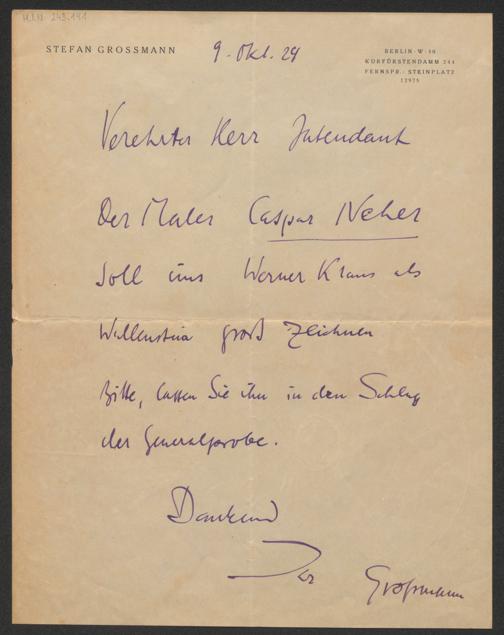 H.I.N. 243.141
STEFAN GROSSMANN
9. Okt. 24
BERLIN · W · 50
KURFÜRSTENDAMM 244
FERNSPR.: STEINPLATZ
12975
Verehrter Herr Intendant
Der Maler Caspar Neher
soll uns Werner Kraus als
Wallenstein groß zeichnen
Bitte, lassen Sie ihn in den Schlag
der Generalprobe.
Dankend
Ihr
Großmann